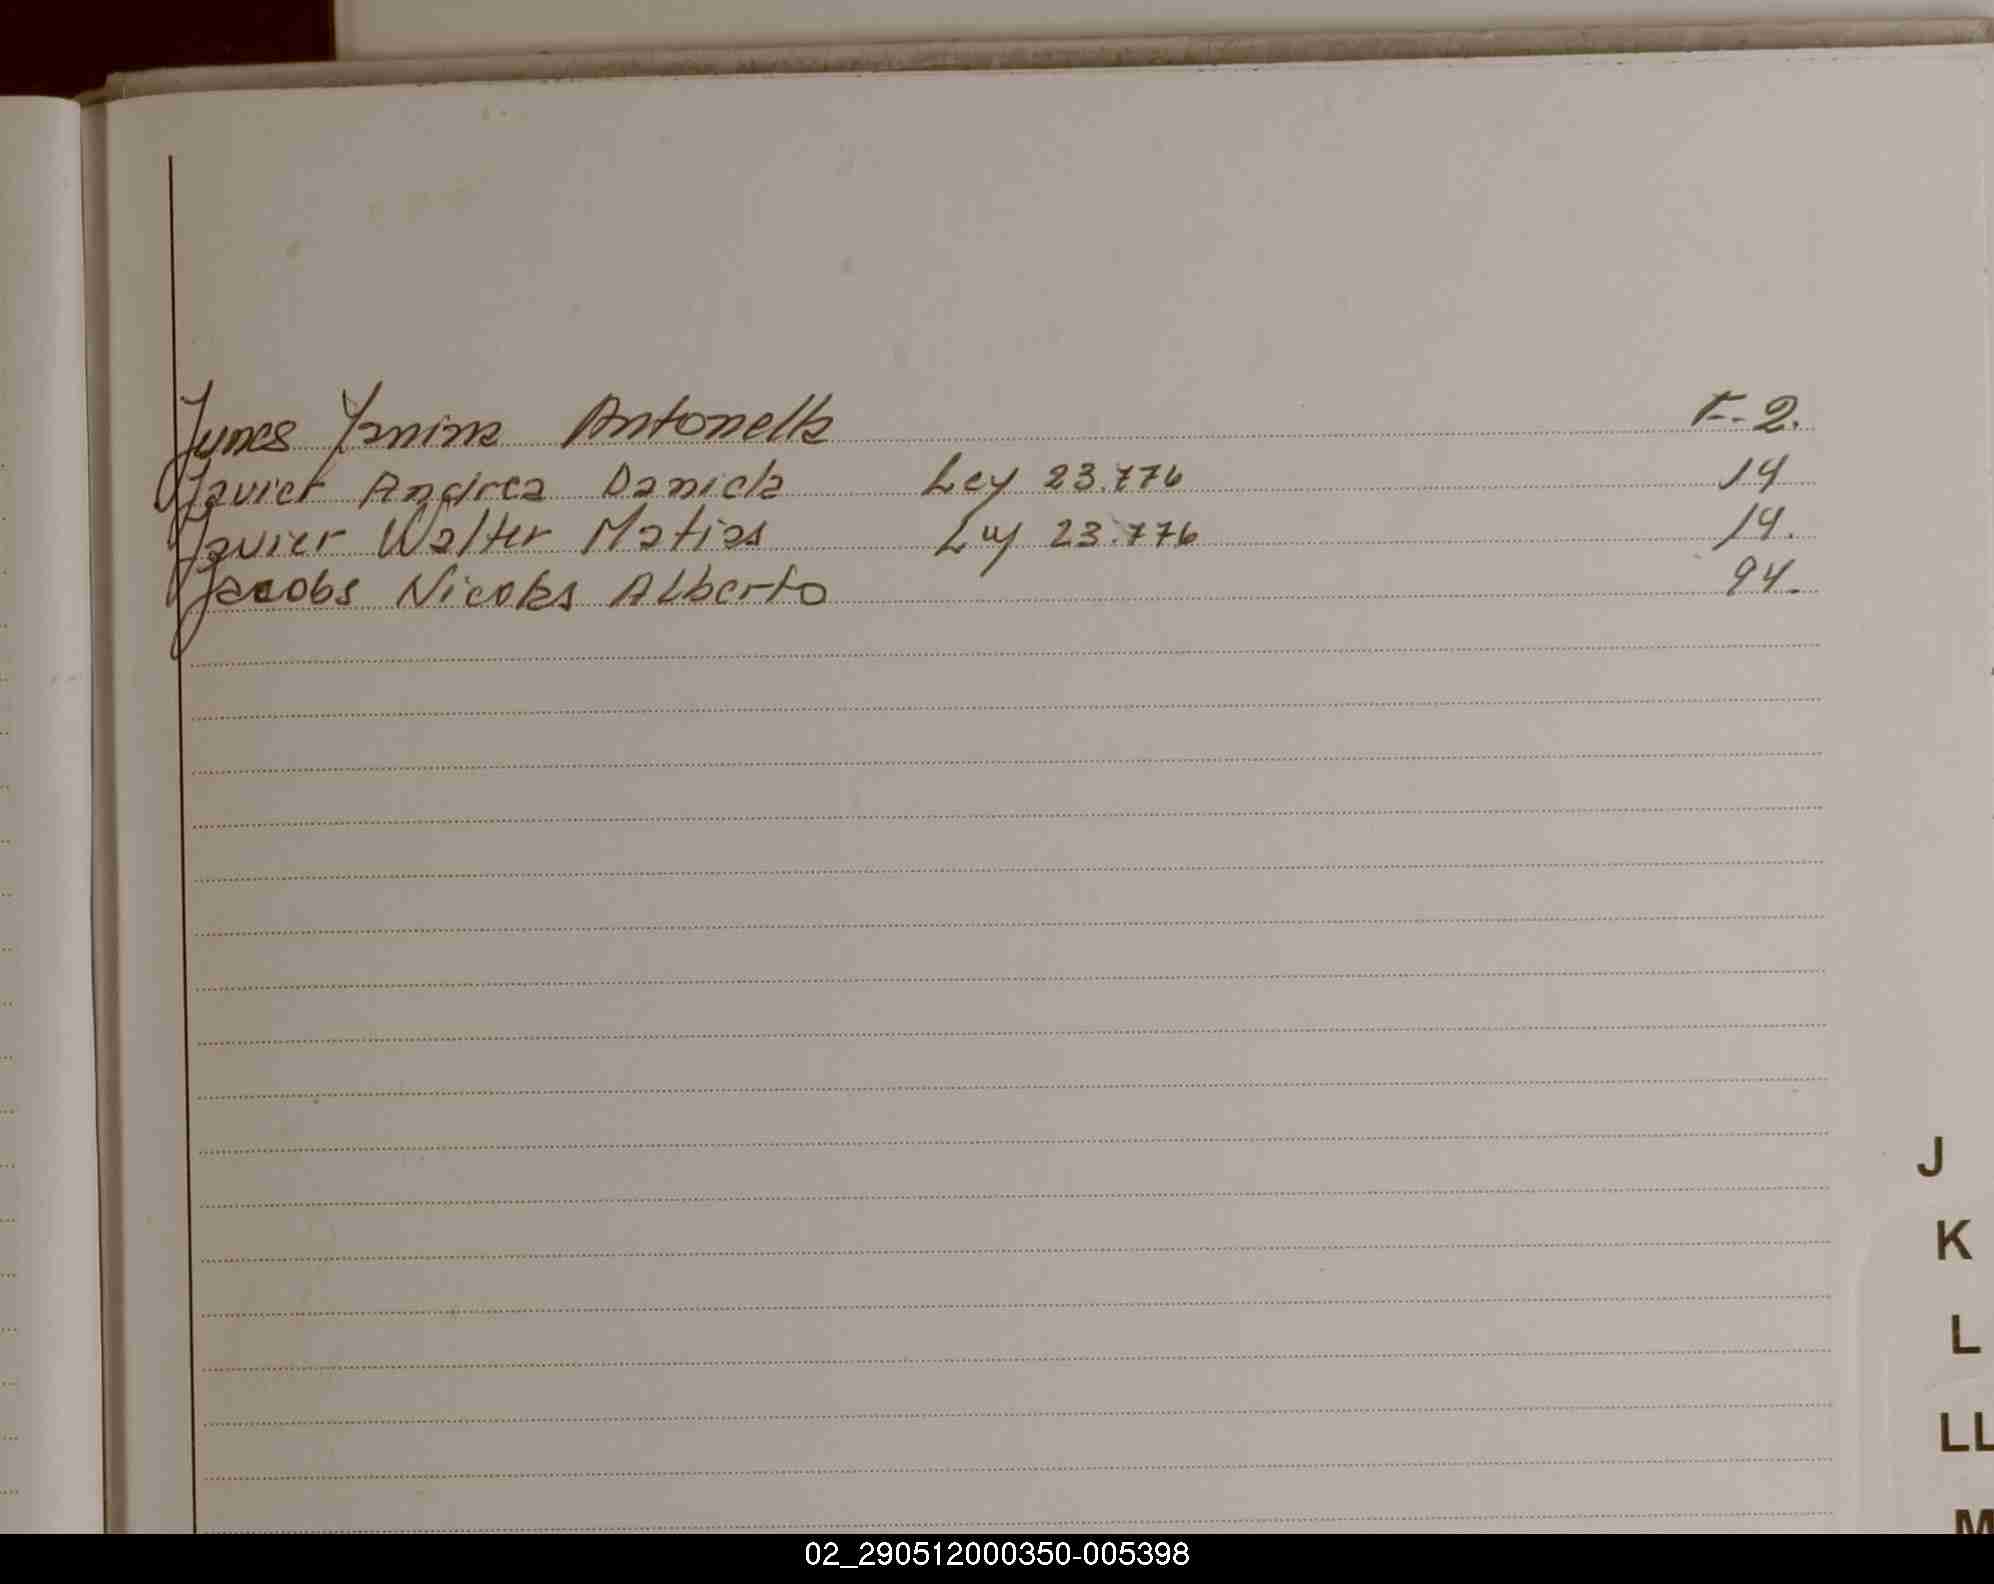 Junes Yanina Antonella F-2.
Javier Andrea Daniela Ley 23.776 14
Javier Walter Matias Ley 23.776 14.
Jacobs Nicolas Alberto 94.
J
K
L
LL
M
02_290512000350-005398